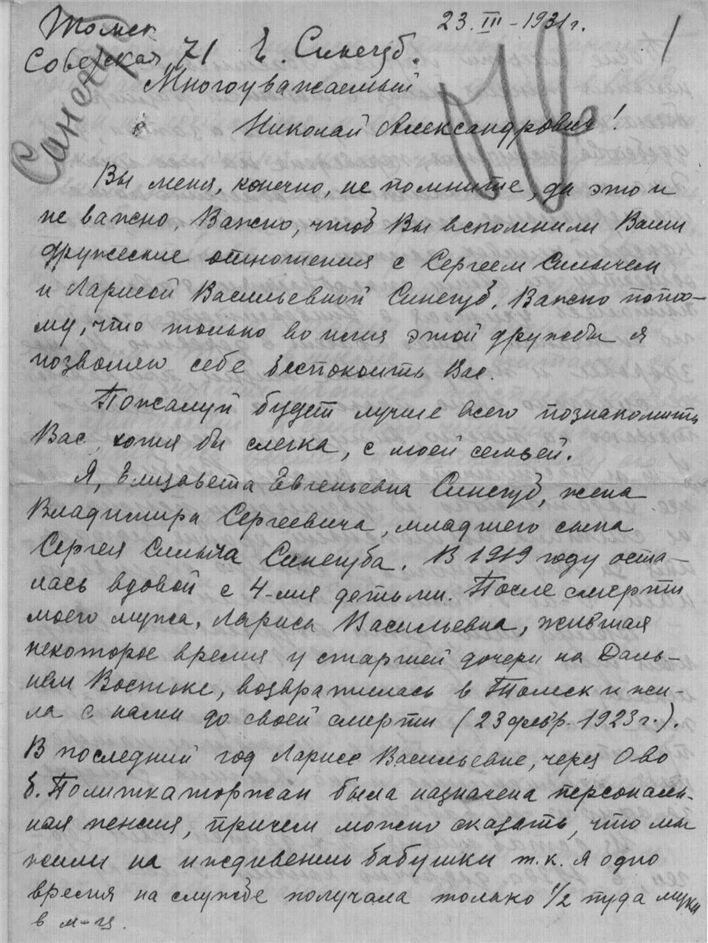 Томск 23.III-1931г.
Советская 71 Е. Синегуб.
Синегуб
Многоуважаемый
Николай Александрович!
Вы меня, конечно, не помните, да это и
не важно. Важно, чтоб Вы вспомнили Ваши
дружеские отношения с Сергеем Силычем
и Ларисой Васильевной Синегуб. Важно пото-
му, что только во имя этой дружбы я
позволяю себе беспокоить Вас.
Пожалуй будет лучше всего познакомить
Вас, хотя бы слегка, с моей семьей.
Я, Елизавета Евгеньевна Синегуб, жена
Владимира Сергеевича, младшего сына
Сергея Силыча Синегуба. В 1919 году оста-
лась вдовой с 4-мя детьми. После смерти
моего мужа, Лариса Васильевна, жившая
некоторое время у старшей дочери на Даль-
нем Востоке, возвратилась в Томск и жи-
ла с нами до своей смерти (23 февр. 1923 г.).
В последний год Ларисе Васильевне, через О-во
б. Политкаторжан была назначена персональ-
ная пенсия, причем можно сказать, что мы
жили на иждивении бабушки т.к. я одно
время на службе получала только 1/2 пуда муки
в м-ц.